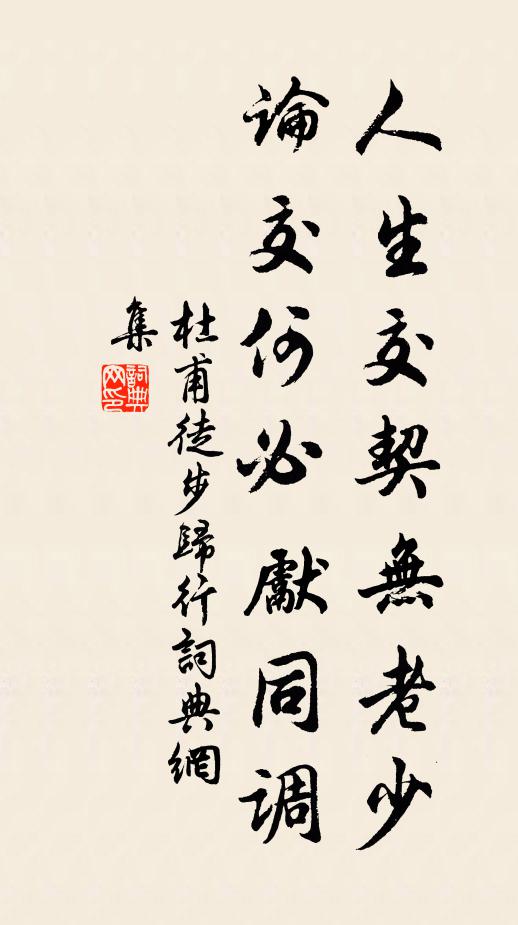 人生交契無老少
論交何必獻同調
杜甫徒步歸行詞典網
集
詞典
网印